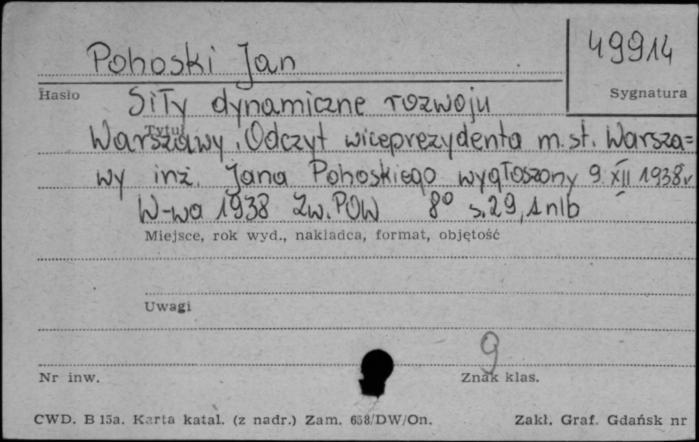 Pohoski Jan
49914
Hasło
Sygnatura
Siły dynamiczne rozwoju
Tytuł
Warszawy. Odczyt wiceprezydenta m. st. Warsza=
wy inż. Jana Pohoskiego wygłoszony 9. XII 1938 r
W-wa 1938 Zw. POW 8° s. 29, 1 nlb
Miejsce, rok wyd., nakładca, format, objętość
Uwagi
9
Nr inw.
Znak klas.
CWD. B 15a. Karta katal. (z nadr.) Zam. 658/DW/On.
Zakł. Graf. Gdańsk nr